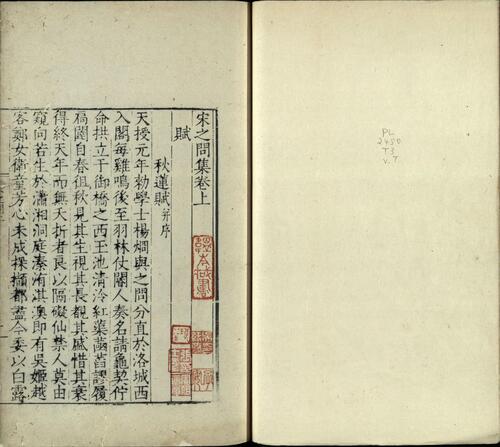 宋之問集卷上
賦
秋蓮賦 并序
天授元年勑學士楊烱與之問分直於洛城西
入閣每雞鳴後至羽林仗閽人奏名請龜契佇
命拱立于御橋之西玉池清泠紅蕖菡萏謬履
扃闥自春徂秋見其生視其長覩其盛惜其衰
得終天年而無夭折者良以隔礙仙禁人莫由
窺向若生於瀟湘洞庭溱洧淇澳即有吳姬越
客鄭女衛童芳心未成採擷都盡今委以白露
PL
2450
T3
v.7